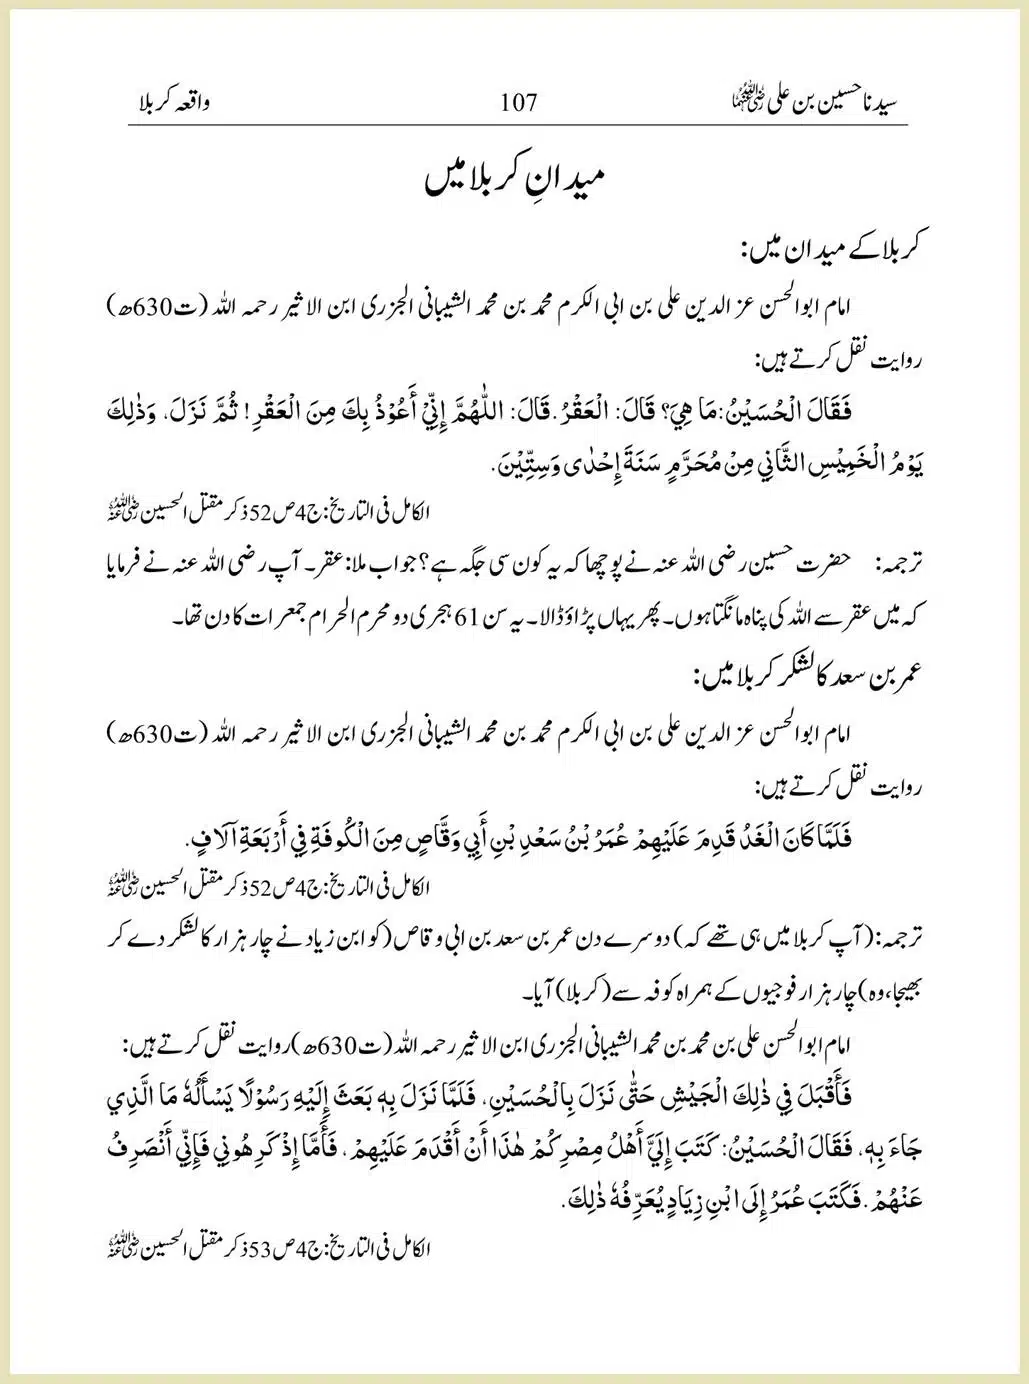 سیدنا حسین بن علی رضی اللہ عنہما 107 واقعہ کربلا
میدانِ کربلا میں
کربلا کے میدان میں:
امام ابوالحسن عز الدین علی بن ابی الکرم محمد بن محمد الشیبانی الجزری ابن الاثیر رحمہ اللہ (ت630ھ)
روایت نقل کرتے ہیں:
فَقَالَ الْحُسَيْنُ: مَا هِيَ؟ قَالَ: الْعَقْرُ. قَالَ: اللّٰهُمَّ إِنِّيْ أَعُوْذُ بِكَ مِنَ الْعَقْرِ! ثُمَّ نَزَلَ، وَذٰلِكَ
يَوْمُ الْخَمِيْسِ الثَّانِي مِنْ مُحَرَّمٍ سَنَةَ إِحْدٰى وَسِتِّيْنَ.
الکامل فی التاریخ: ج4 ص52 ذکر مقتل الحسین رضی اللہ عنہ
ترجمہ: حضرت حسین رضی اللہ عنہ نے پوچھا کہ یہ کون سی جگہ ہے؟ جواب ملا: عقر۔ آپ رضی اللہ عنہ نے فرمایا
کہ میں عقر سے اللہ کی پناہ مانگتا ہوں۔ پھر یہاں پڑاؤ ڈالا۔ یہ سن 61 ہجری دو محرم الحرام جمعرات کا دن تھا۔
عمر بن سعد کا لشکر کربلا میں:
امام ابوالحسن عز الدین علی بن ابی الکرم محمد بن محمد الشیبانی الجزری ابن الاثیر رحمہ اللہ (ت630ھ)
روایت نقل کرتے ہیں:
فَلَمَّا كَانَ الْغَدُ قَدِمَ عَلَيْهِمْ عُمَرُ بْنُ سَعْدِ بْنِ أَبِي وَقَّاصٍ مِنَ الْكُوفَةِ فِي أَرْبَعَةِ آلَافٍ.
الکامل فی التاریخ: ج4 ص52 ذکر مقتل الحسین رضی اللہ عنہ
ترجمہ: (آپ کربلا میں ہی تھے کہ) دوسرے دن عمر بن سعد بن ابی وقاص (کو ابن زیاد نے چار ہزار کا لشکر دے کر
بھیجا، وہ) چار ہزار فوجیوں کے ہمراہ کوفہ سے (کربلا) آیا۔
امام ابوالحسن علی بن محمد بن محمد الشیبانی الجزری ابن الاثیر رحمہ اللہ (ت630ھ) روایت نقل کرتے ہیں:
فَأَقْبَلَ فِي ذٰلِكَ الْجَيْشِ حَتّٰى نَزَلَ بِالْحُسَيْنِ، فَلَمَّا نَزَلَ بِهٖ بَعَثَ إِلَيْهِ رَسُوْلًا يَسْأَلُهٗ مَا الَّذِي
جَاءَ بِهٖ، فَقَالَ الْحُسَيْنُ: كَتَبَ إِلَيَّ أَهْلُ مِصْرِكُمْ هٰذَا أَنْ أَقْدَمَ عَلَيْهِمْ، فَأَمَّا إِذْ كَرِهُونِي فَإِنِّي أَنْصَرِفُ
عَنْهُمْ. فَكَتَبَ عُمَرُ إِلَى ابْنِ زِيَادٍ يُعَرِّفُهٗ ذٰلِكَ.
الکامل فی التاریخ: ج4 ص53 ذکر مقتل الحسین رضی اللہ عنہ